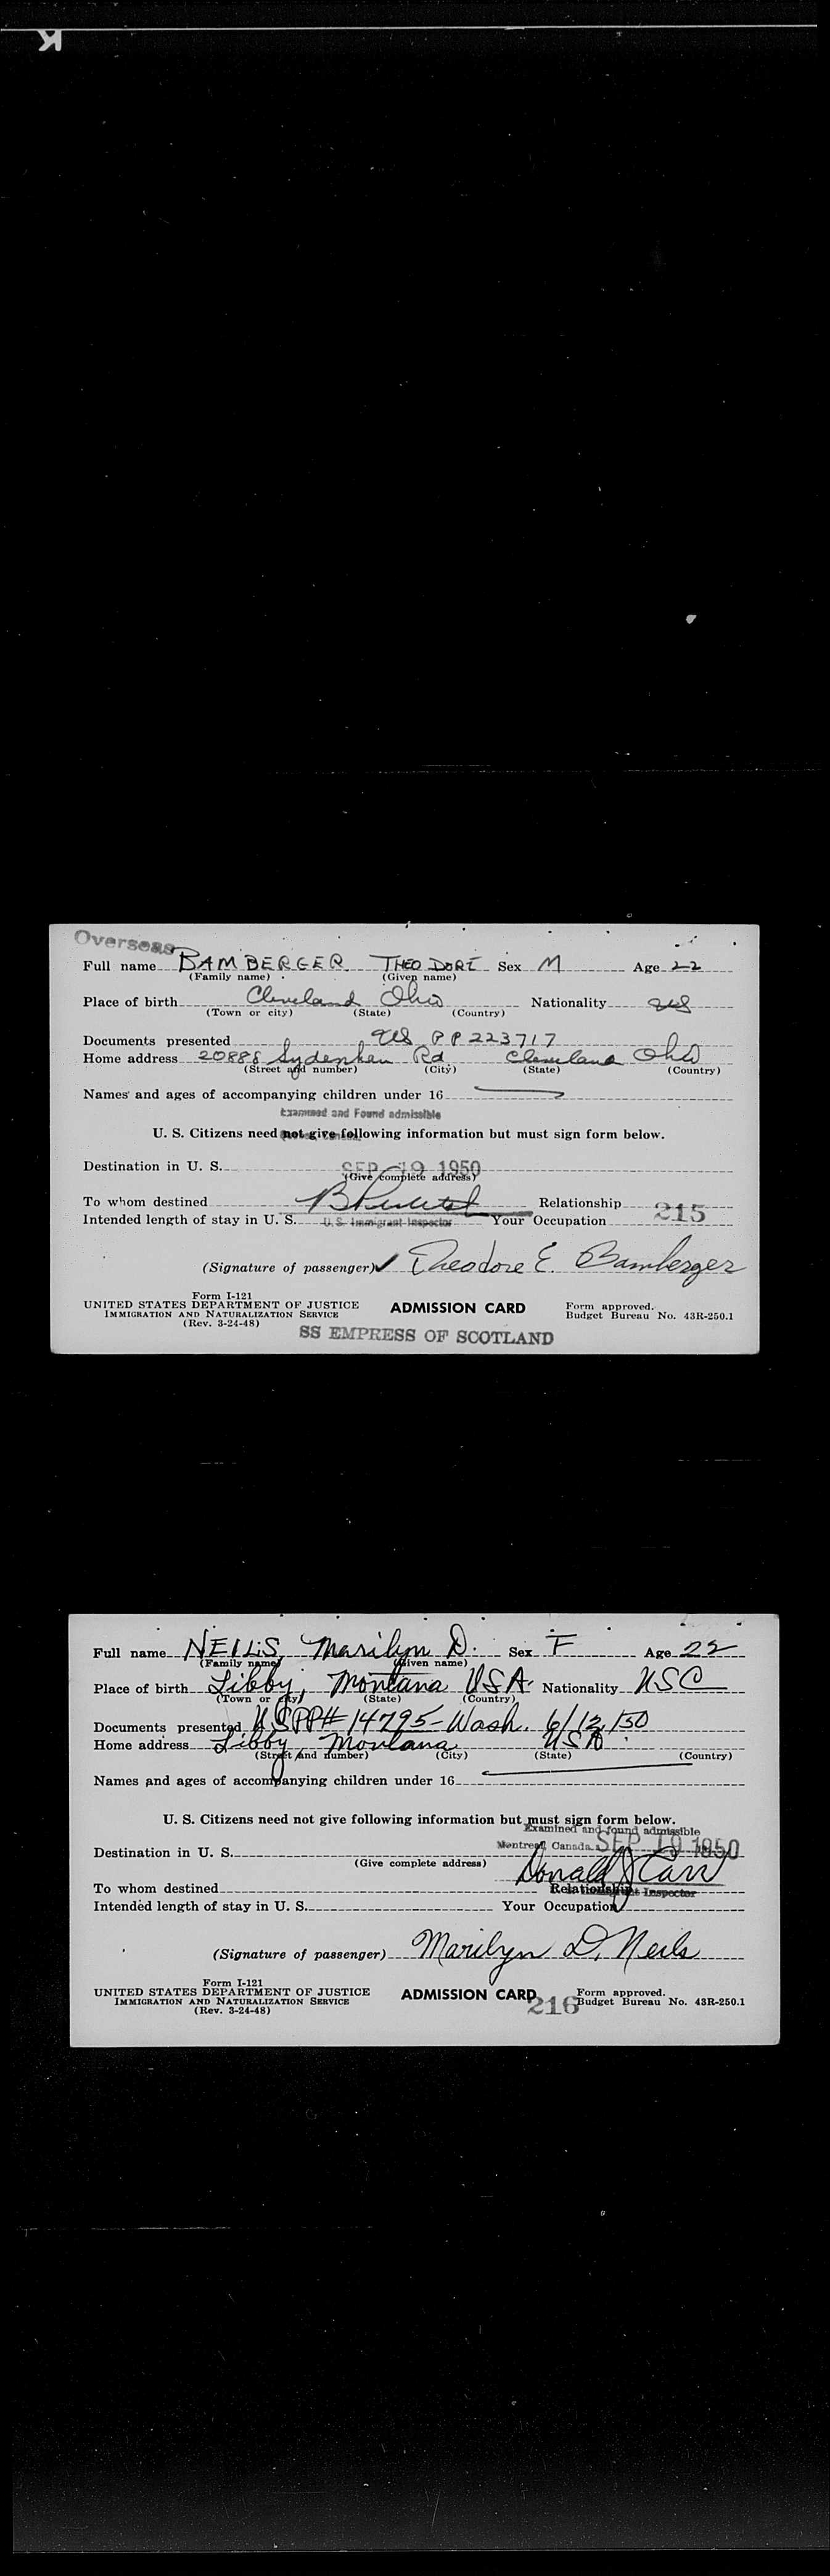 K
Overseas
Full name BAMBERGER THEODORE Sex M Age 22
(Family name) (Given name)
Place of birth Cleveland Ohio Nationality US
(Town or city) (State) (Country)
Documents presented US PP 223717
Home address Rd. Cleveland Ohio
(Street and number) (City) (State) (Country)
Names and ages of accompanying children under 16
Examined and Found admissible
U. S. Citizens need not give following information but must sign form below.
Destination in U. S. SEP 19 1950
(Give complete address)
To whom destined Relationship 215
Intended length of stay in U. S. U. S. Immigrant Inspector Your Occupation
(Signature of passenger) Theodore E. Bamberger
Form I-121
UNITED STATES DEPARTMENT OF JUSTICE ADMISSION CARD Form approved.
IMMIGRATION AND NATURALIZATION SERVICE Budget Bureau No. 43R-250.1
(Rev. 3-24-48)
SS EMPRESS OF SCOTLAND
Full name NEILS, Marilyn D. Sex F Age 22
(Family name) (Given name)
Place of birth Libby, Montana USA Nationality USC
(Town or city) (State) (Country)
Documents presented USPP# 14795 Wash. 6/12/50
Home address Libby Montana USA
(Street and number) (City) (State) (Country)
Names and ages of accompanying children under 16
U. S. Citizens need not give following information but must sign form below.
Examined and found admissible
Montreal Canada SEP 19 1950
Destination in U. S.
(Give complete address)
Donald J Carr
To whom destined Relationship Immigrant Inspector
Intended length of stay in U. S. Your Occupation
(Signature of passenger) Marilyn D. Neils
Form I-121
UNITED STATES DEPARTMENT OF JUSTICE ADMISSION CARD Form approved.
IMMIGRATION AND NATURALIZATION SERVICE 216 Budget Bureau No. 43R-250.1
(Rev. 3-24-48)